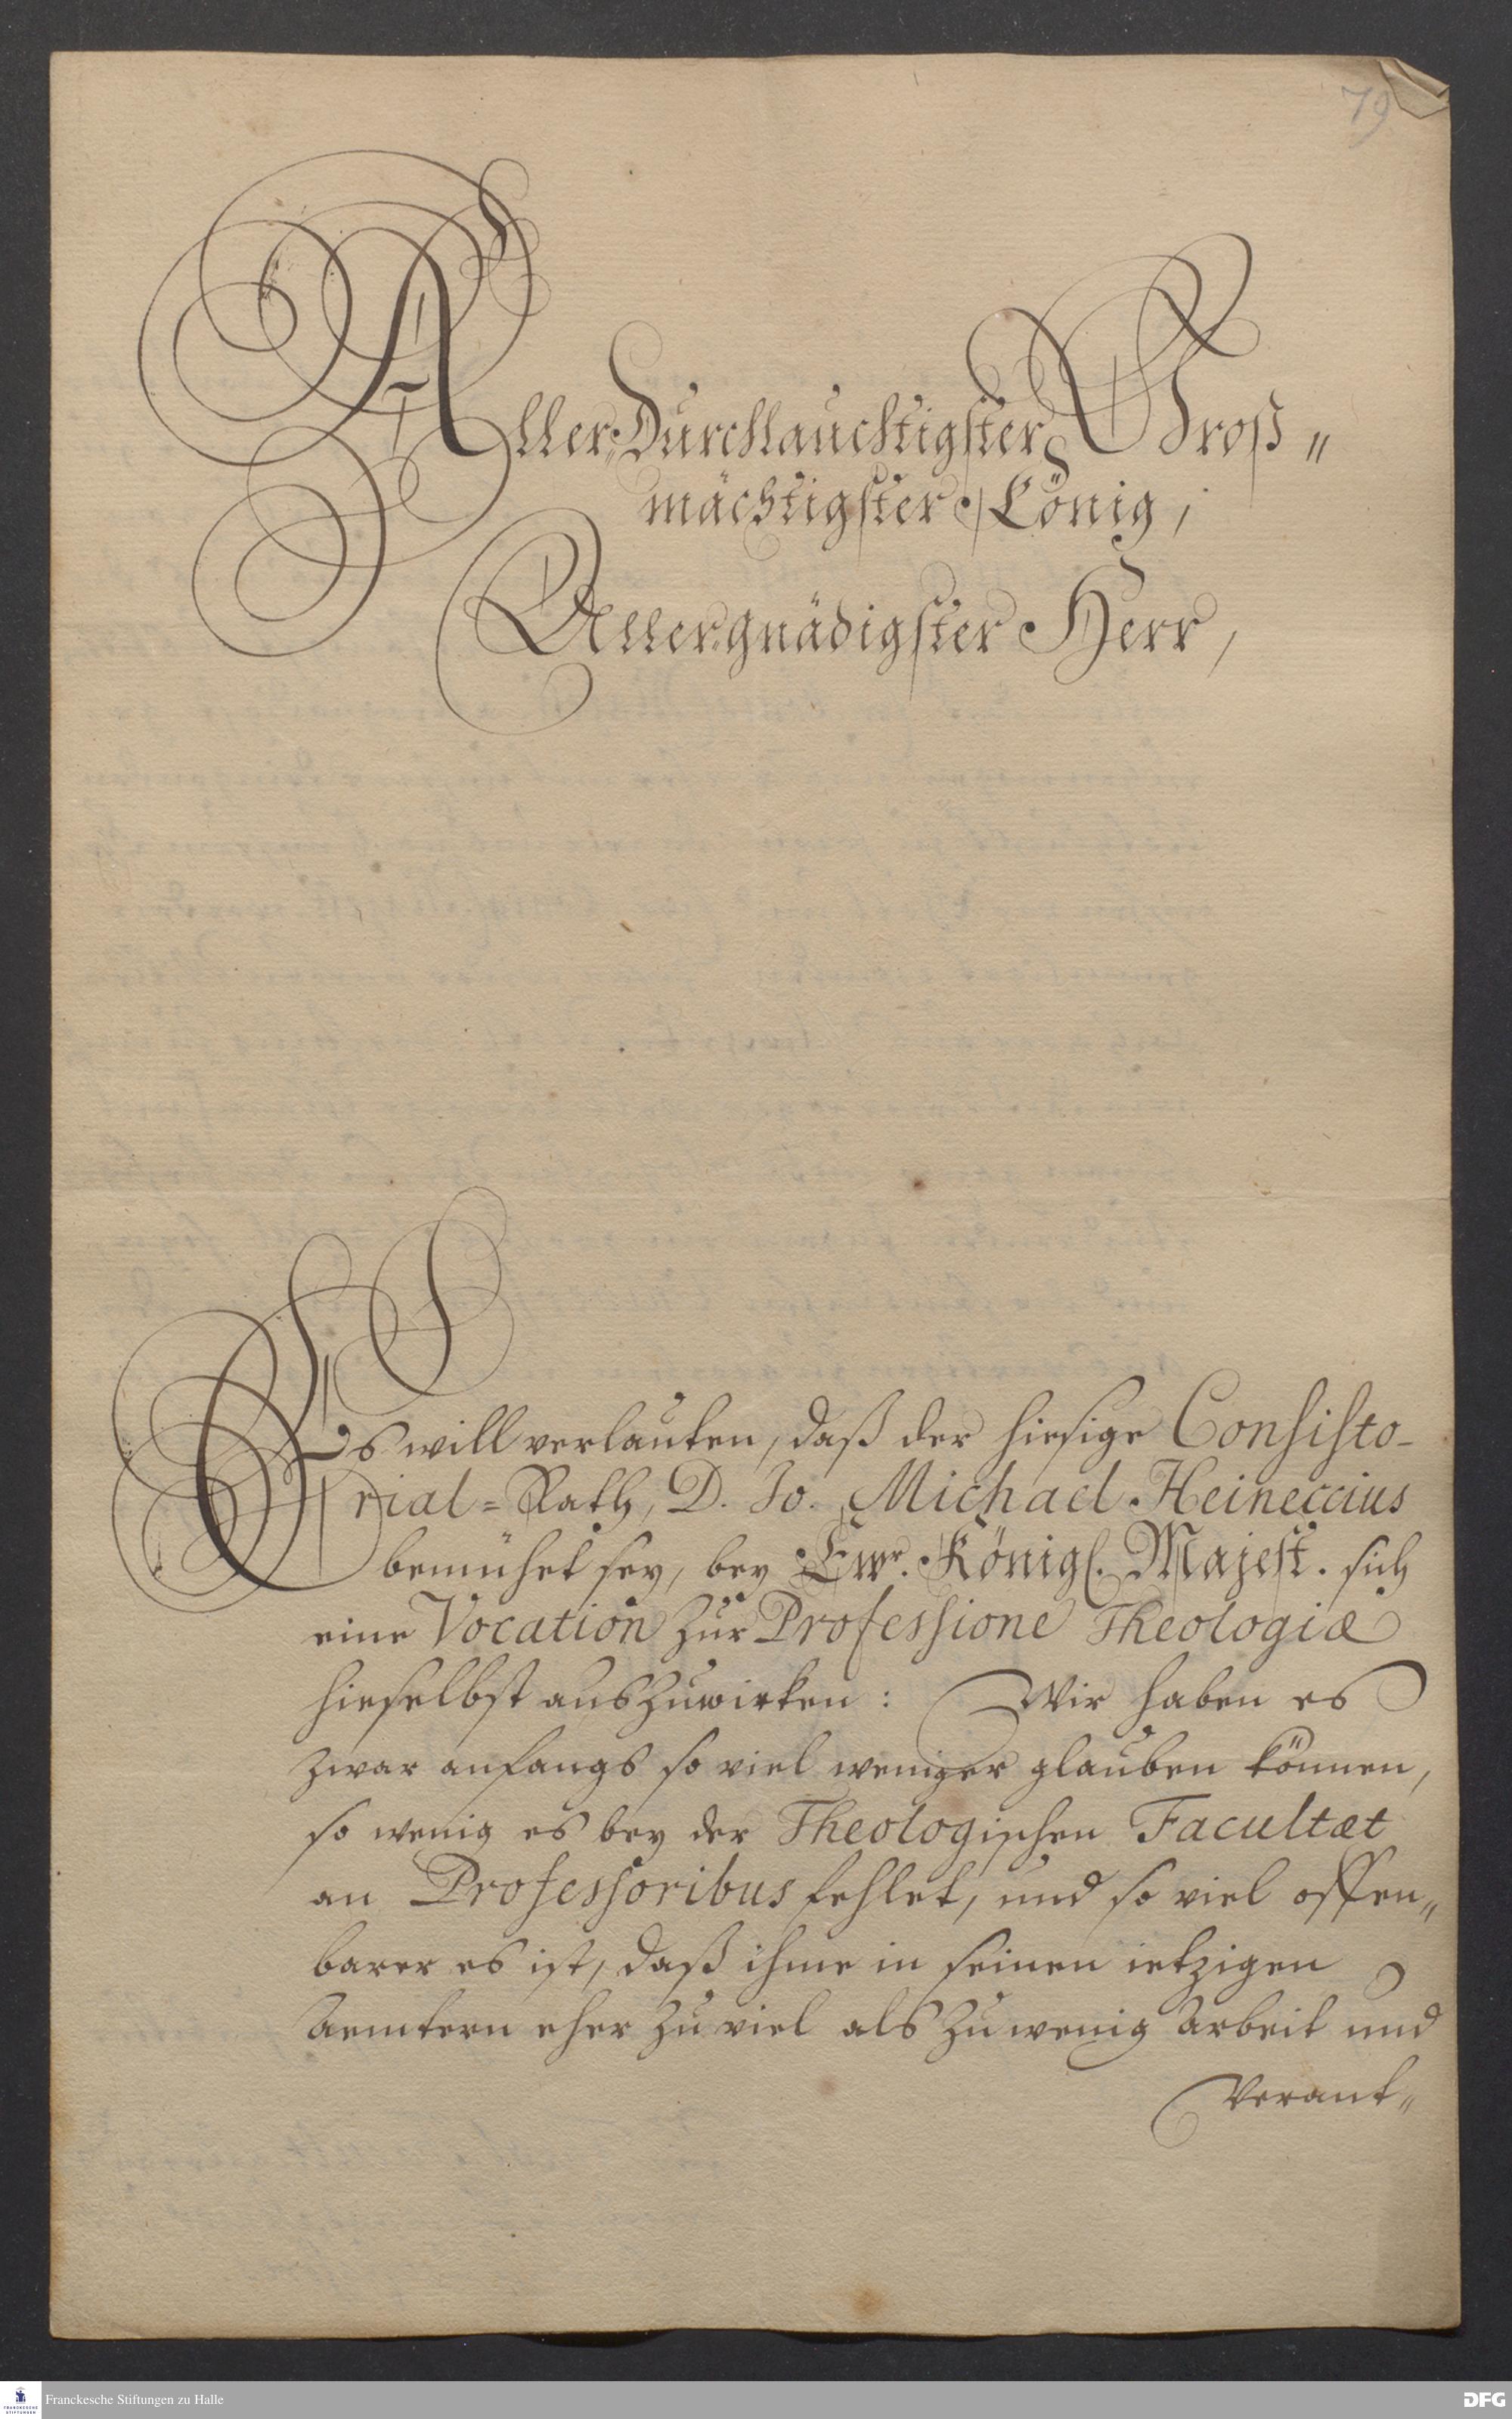 79
Aller-Durchlauchtigster Groß„
mächtigster König,
Allergnädigster Herr,
Es will verlauten, daß der hiesige Consisto-
rial=Rath, D. Jo. Michael Heineccius
bemühet sey, bey Ewr. Königl. Majest. sich
eine Vocation zur Professione Theologiæ
hieselbst auszuwirken: Wir haben es
zwar anfangs so viel weniger glauben können,
so wenig es bey der Theologischen Facultæt
an Professoribus fehlet, und so viel offen„
barer es ist, daß ihme in seinen ietzigen
Aemtern eher zu viel als zu wenig Arbeit und
Verant„
Franckesche Stiftungen zu Halle
FRANCKESCHE
STIFTUNGEN
DFG